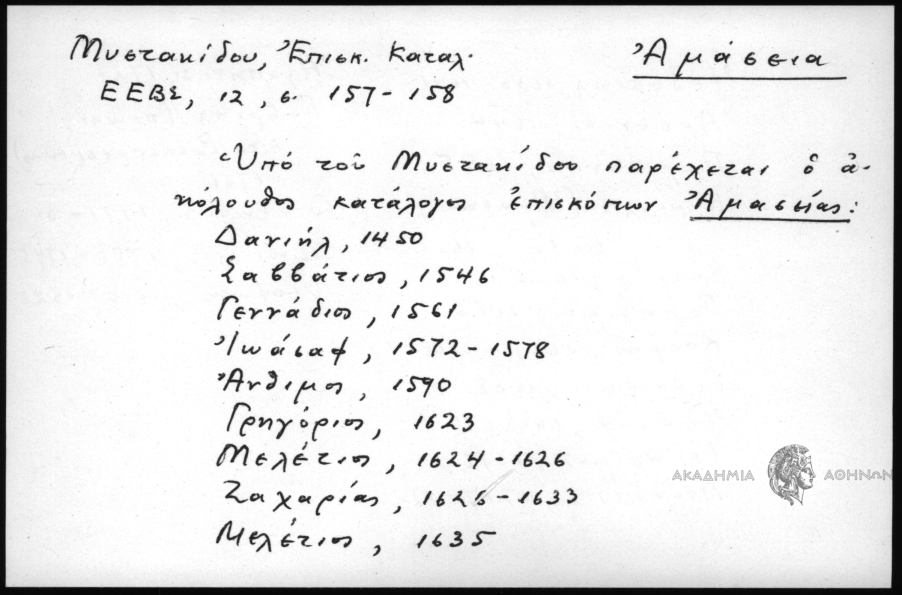 Μυστακίδου, Ἐπισκ. Καταλ.
Ἀμάσεια
ΕΕΒΣ, 12, σ. 157-158
Ὑπό τοῦ Μυστακίδου παρέχεται ὁ ἀ-
κόλουθος κατάλογος ἐπισκόπων Ἀμασείας:
Δανιήλ, 1450
Σαββάτιος, 1546
Γεννάδιος, 1561
Ἰωάσαφ, 1572-1578
Ἄνθιμος, 1590
Γρηγόριος, 1623
Μελέτιος, 1624-1626
Ζαχαρίας, 1626-1633
Μελέτιος, 1635
ΑΚΑΔΗΜΙΑ ΑΘΗΝΩΝ